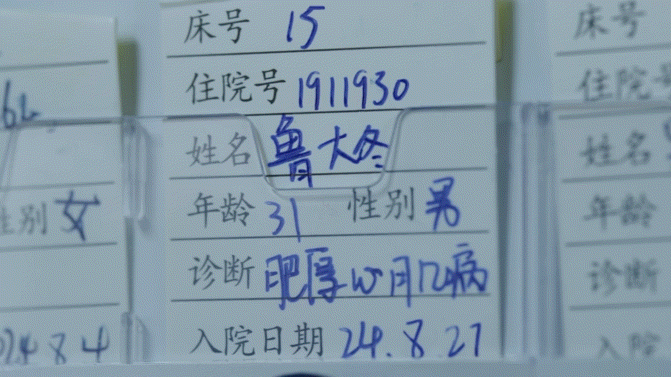 床号 15
住院号 1911930
姓名 鲁大冬
年龄 31 性别 男
诊断 肥厚心月几病
入院日期 24.8.27
性别 女
024 8 4
床号
住院号
姓名
年龄
诊断
入院